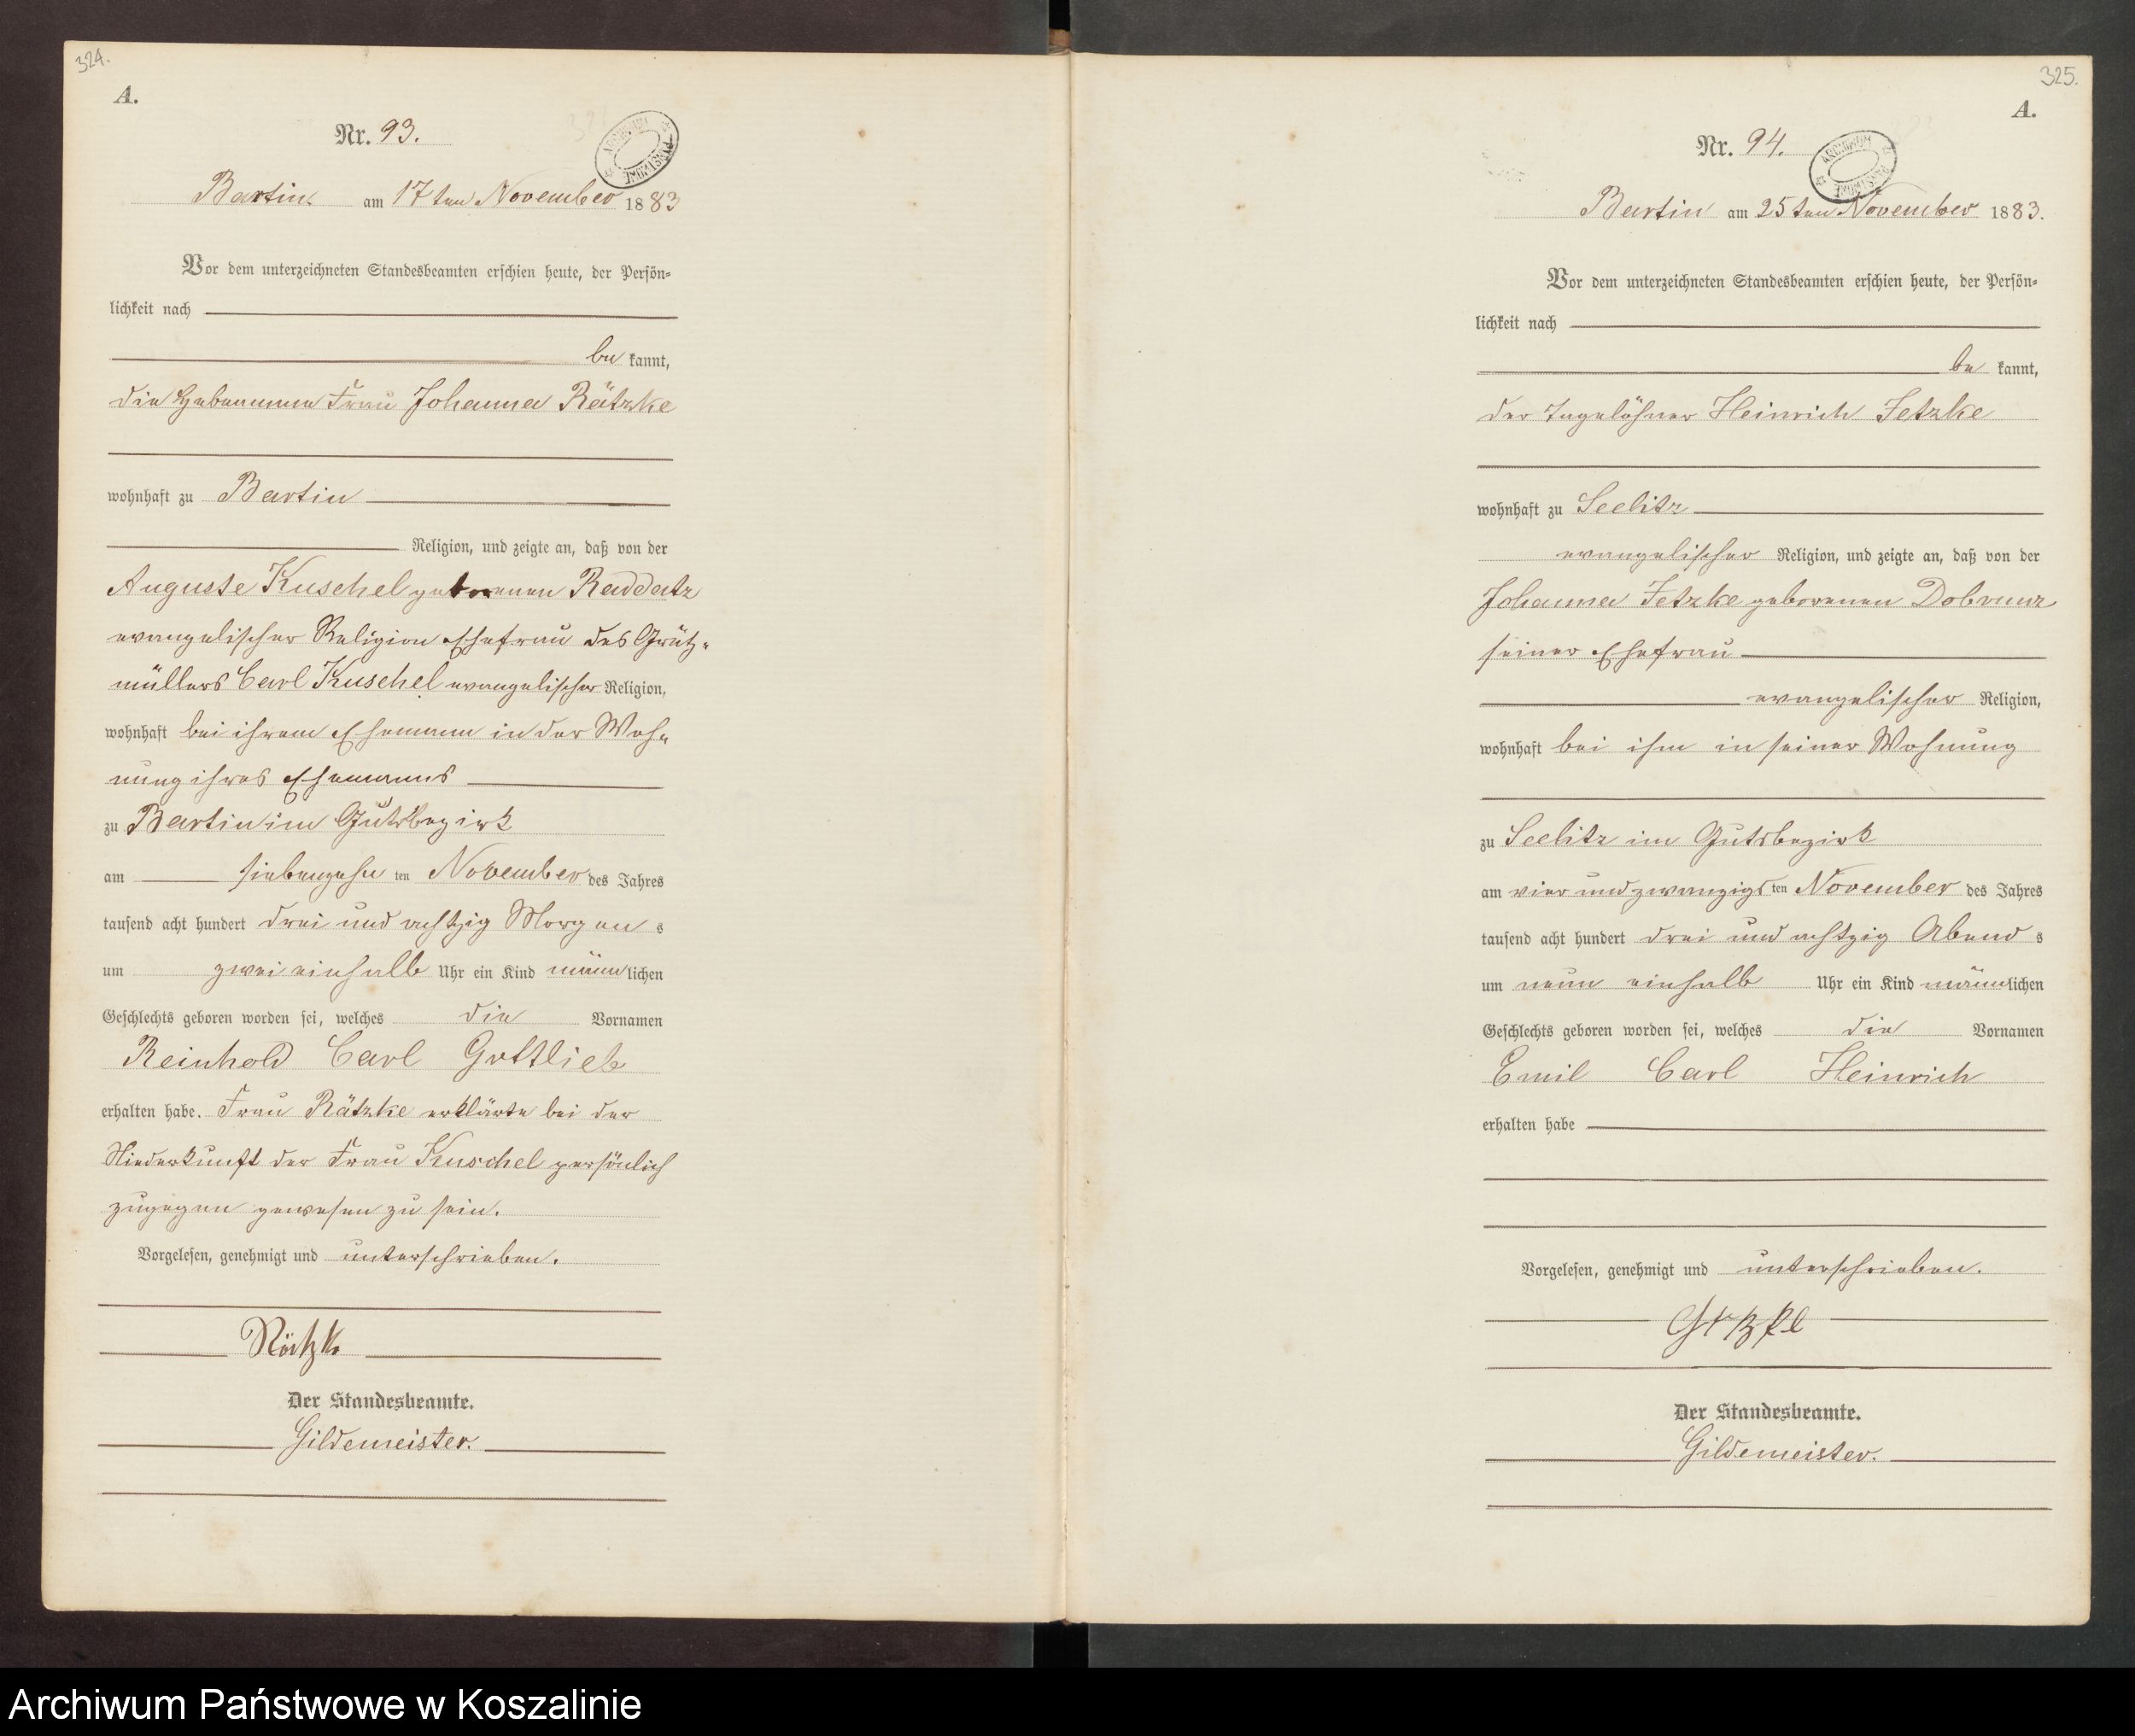 324.
A.
Nr. 93.
ARCHIWUM PAŃSTWOWE
Bartin am 17ten November 1883
Vor dem unterzeichneten Standesbeamten erschien heute, der Persön-
lichkeit nach
be kannt,
die Hebamme Frau Johanna Rätzke
wohnhaft zu Bartin
Religion, und zeigte an, daß von der
Auguste Kuschel geborenen Raddatz
evangelischer Religion Ehefrau des Grütz-
müllers Carl Kuschel evangelischer Religion,
wohnhaft bei ihrem Ehemann in der Woh-
nung ihres Ehemanns
zu Bartin im Gutsbezirk
am siebenzehn ten November des Jahres
tausend acht hundert drei und achtzig Morgen s
um zwei einhalb Uhr ein Kind männlichen
Geschlechts geboren worden sei, welches die Vornamen
Reinhold Carl Gottlieb
erhalten habe. Frau Rätzke erklärte bei der
Niederkunft der Frau Kuschel persönlich
zugegen gewesen zu sein.
Vorgelesen, genehmigt und unterschrieben.
Rätzke
Der Standesbeamte.
Gildemeister.
325.
A.
Nr. 94.
ARCHIWUM PAŃSTWOWE
Bartin am 25ten November 1883.
Vor dem unterzeichneten Standesbeamten erschien heute, der Persön-
lichkeit nach
be kannt,
der Tagelöhner Heinrich Jetzke
wohnhaft zu Seelitz
evangelischer Religion, und zeigte an, daß von der
Johanna Jetzke geborenen Dobrunz
seiner Ehefrau
evangelischer Religion,
wohnhaft bei ihm in seiner Wohnung
zu Seelitz im Gutsbezirk
am vier und zwanzigs ten November des Jahres
tausend acht hundert drei und achtzig Abend s
um neun einhalb Uhr ein Kind männlichen
Geschlechts geboren worden sei, welches die Vornamen
Emil Carl Heinrich
erhalten habe
Vorgelesen, genehmigt und unterschrieben.
Der Standesbeamte.
Gildemeister.
Archiwum Państwowe w Koszalinie